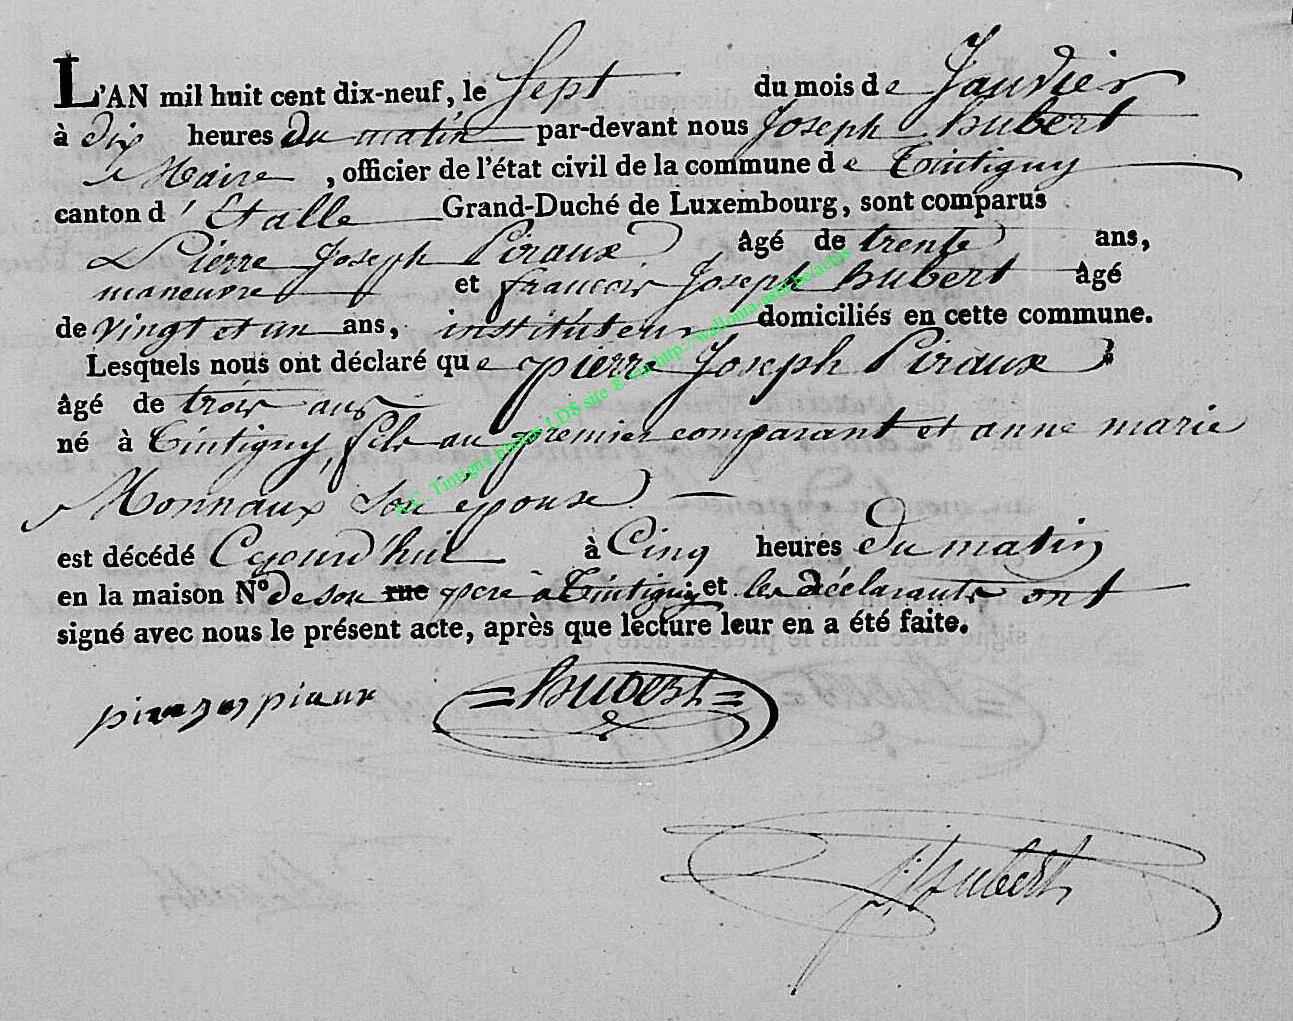 L'AN mil huit cent dix-neuf, le Sept du mois de Janvier
à dix heures du matin par-devant nous Joseph hubert
Maire, officier de l'état civil de la commune de Tintigny
canton d'Etalle Grand-Duché de Luxembourg, sont comparus
Pierre Joseph Piraux âgé de trente ans,
maneuvre et francois Joseph hubert âgé
de vingt et un ans, instituteur domiciliés en cette commune.
Lesquels nous ont déclaré que pierre Joseph Piraux
âgé de trois ans
né à Tintigny, fils au premier comparant et anne marie
Monnaux son epouse
est décédé Cejourd'hui à Cinq heures du matin
en la maison N° de son rue pere à Tintigny et les déclarants ont
signé avec nous le présent acte, après que lecture leur en a été faite.
hubert
hubert
A.C. Tintigny photos LDS site ® via http://wallonia-asbl.be/actes